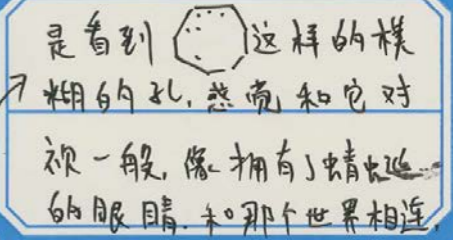 是看到 这样的模
糊的孔,感觉和它对
视一般,像拥有了蜻蜓
的眼睛.和那个世界相连,